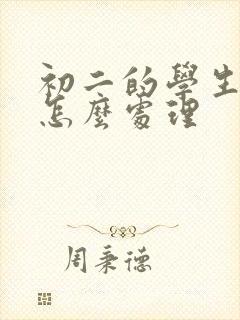 初二的學生
怎麼處理
周秉德